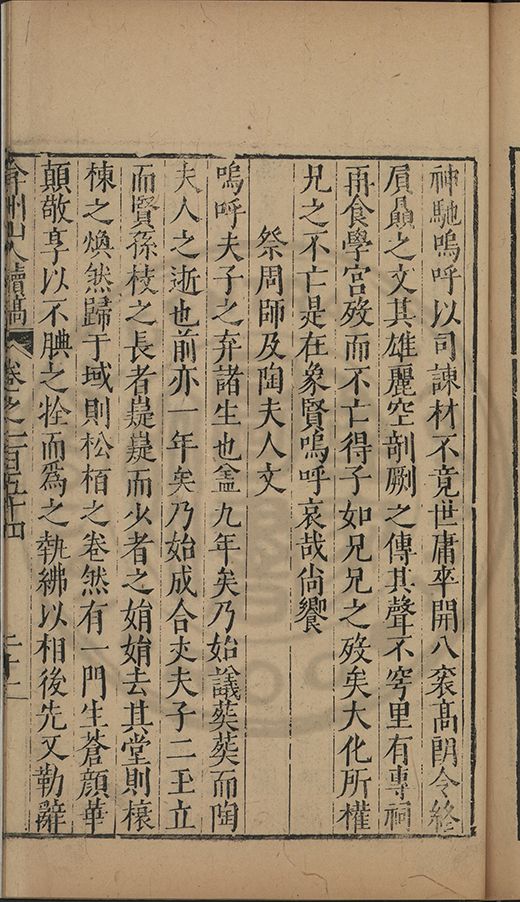 神馳嗚呼以司諫材不竟世庸卒開八袠高朗令終
屓贔之文其雄麗空剖劂之傳其聲不窮里有專祠
再食學宮歿而不亡得子如兄兄之歿矣大化所權
兄之不亡是在象賢嗚呼哀哉尚饗
祭周師及陶夫人文
嗚呼夫子之弃諸生也盖九年矣乃始議葬葬而陶
夫人之逝也前亦一年矣乃始成合夾夫子二王立
而賢孫枝之長者嶷嶷而少者之娟娟去其堂則榱
棟之煥然歸于域則松栢之卷然有一門生蒼顔華
顛敬享以不腆之牷而爲之執紼以相後先又勒辭
弇州山人續稿 卷之一百五十四 二十二